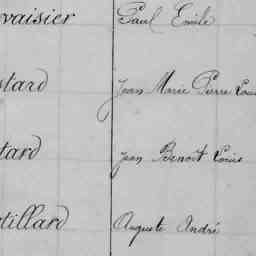 vaisier Paul Emile
stard Jean Marie Pierre Loui
tard Jean Benoit Louis
tillard Auguste André